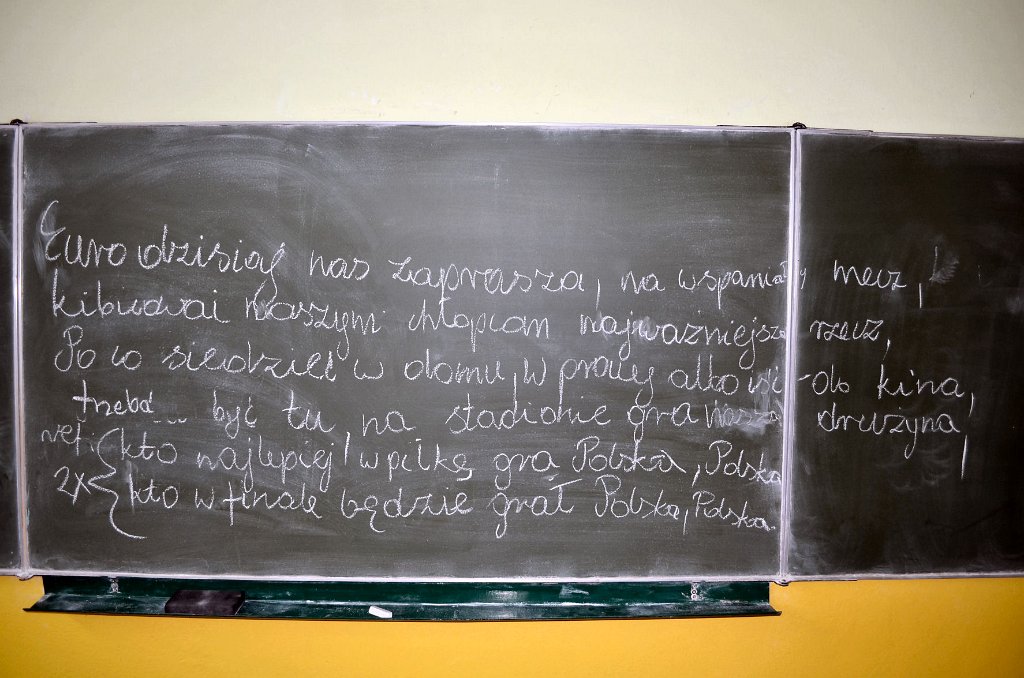 Euro dzisiaj nas zaprasza, na wspaniały mecz,
kibicować naszym chłopcom najważniejsza rzecz,
Po co siedzieć w domu, w pracy albo iść do kina,
trzeba ... być tu na stadionie gra nasza drużyna,
ref. kto najlepiej w piłkę gra Polska, Polska
2x kto w finale będzie grał Polska, Polska.